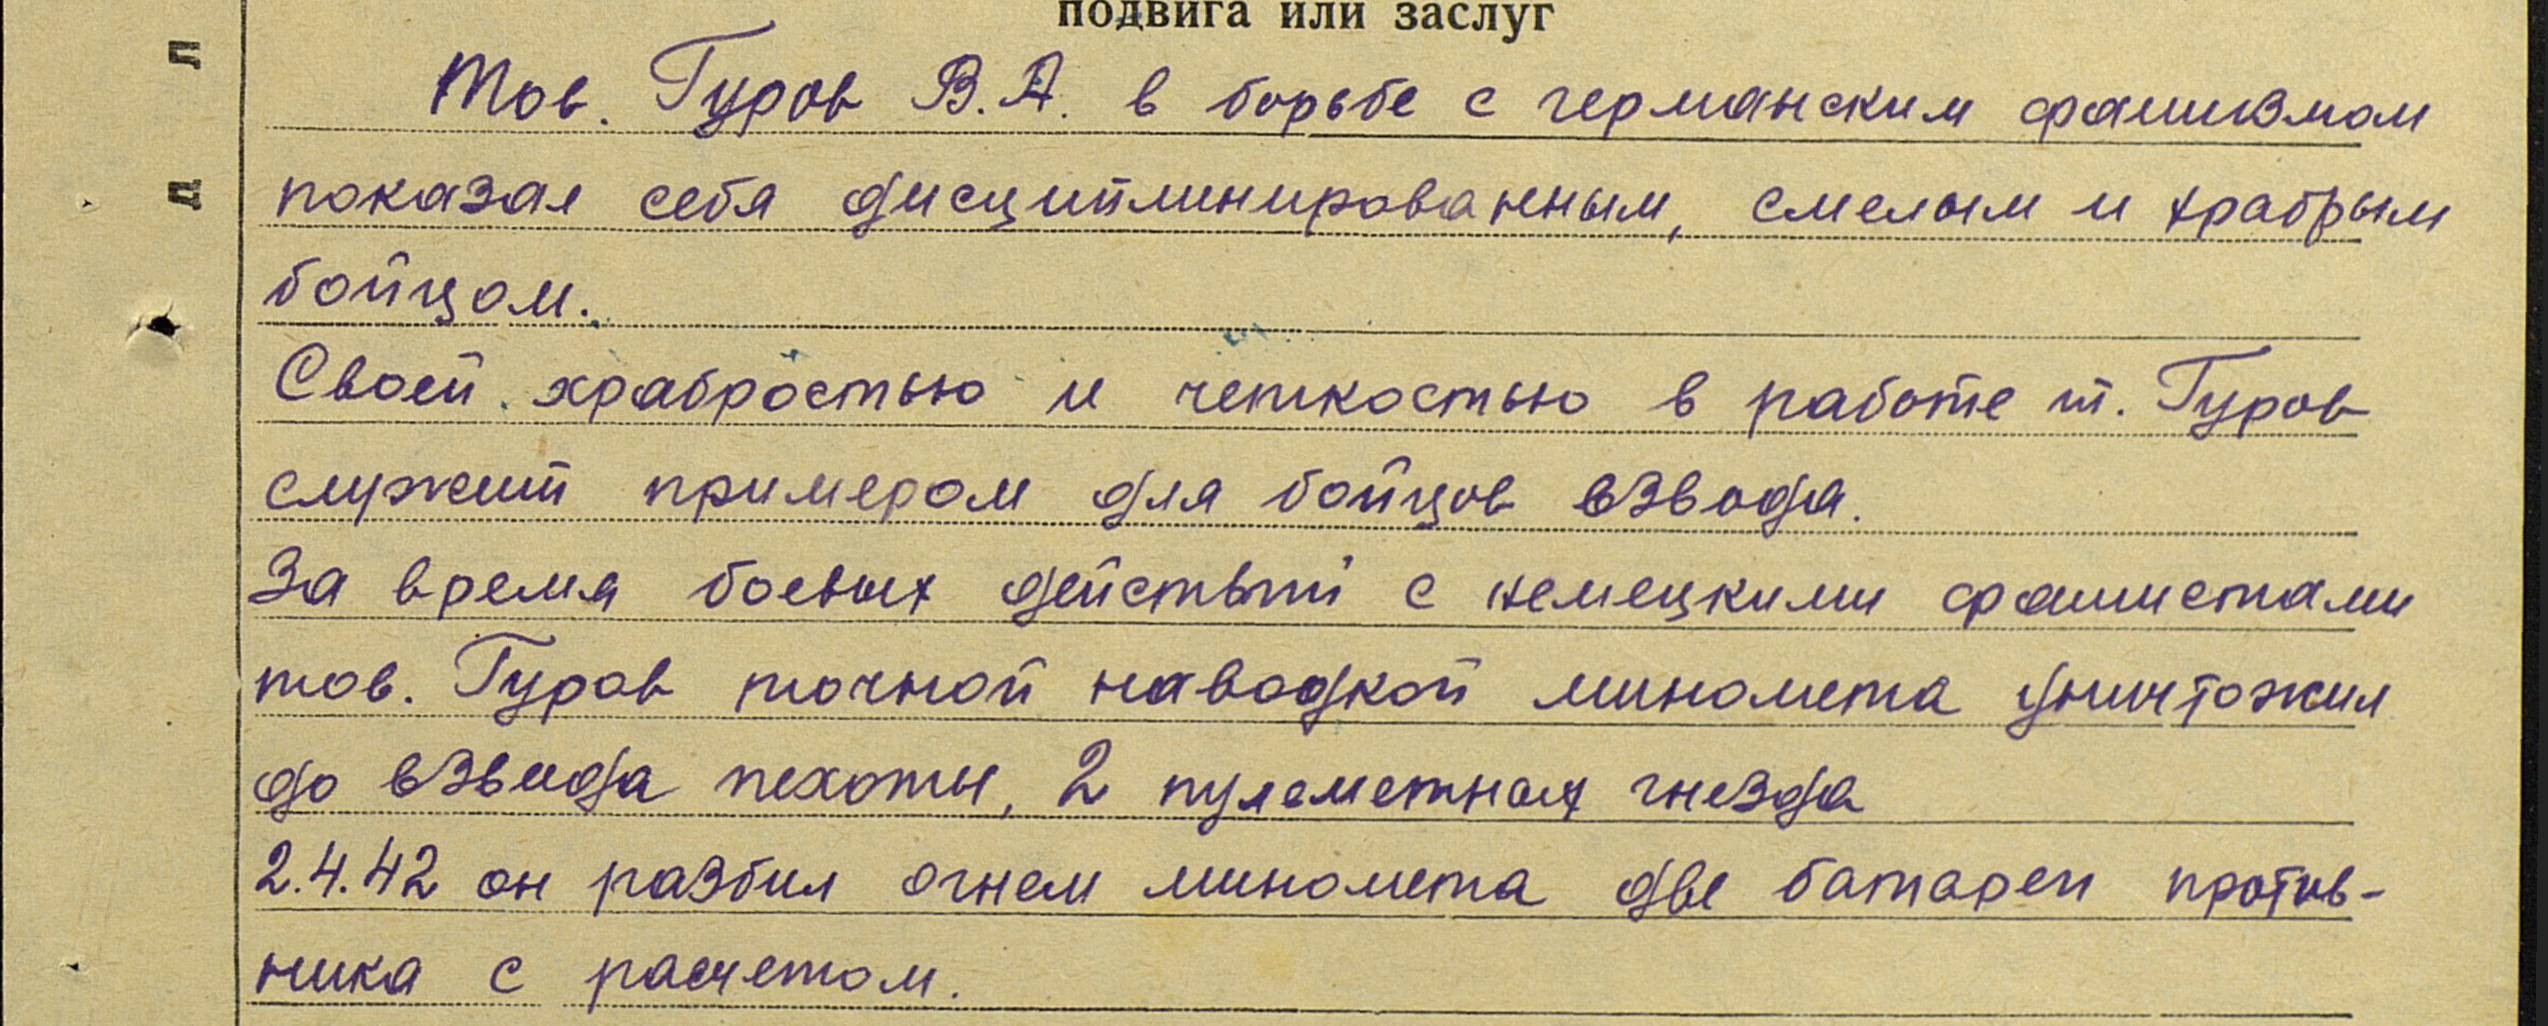 подвига или заслуг
Тов. Гуров В.А. в борьбе с германским фашизмом
показал себя дисциплинированным, смелым и храбрым
бойцом.
Своей храбростью и четкостью в работе т. Гуров
служит примером для бойцов взвода.
За время боевых действий с немецкими фашистами
тов. Гуров точной наводкой миномета уничтожил
до взвода пехоты, 2 пулеметных гнезда
2.4.42 он разбил огнем миномета две батареи против-
ника с расчетом.